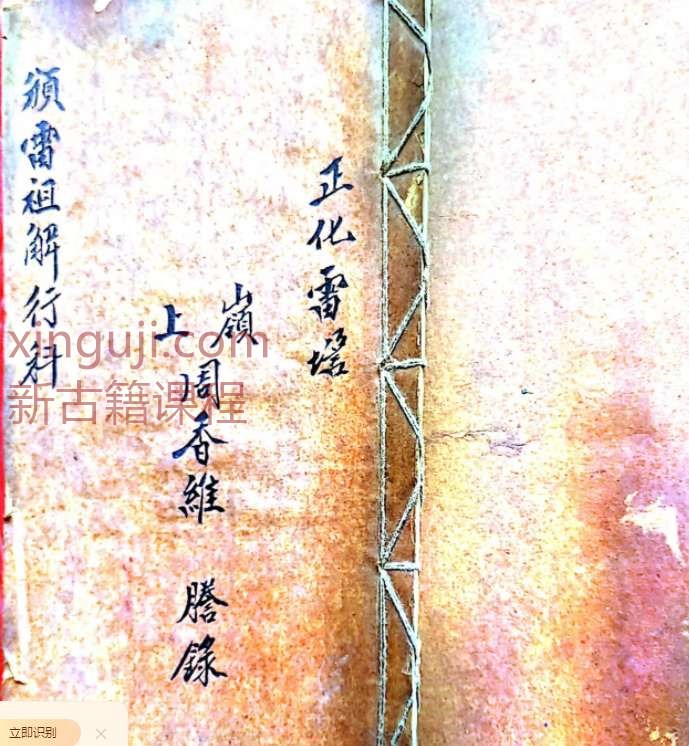 正化雷壇
嶺上周香維 謄錄
頒雷祖解行科
xinguji.com
新古籍课程
立即识别